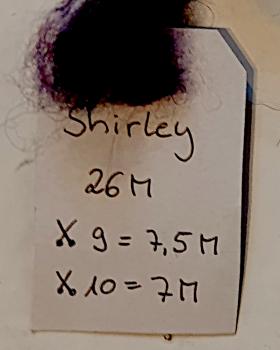 Shirley
26M
X 9 = 7,5M
X 10 = 7M